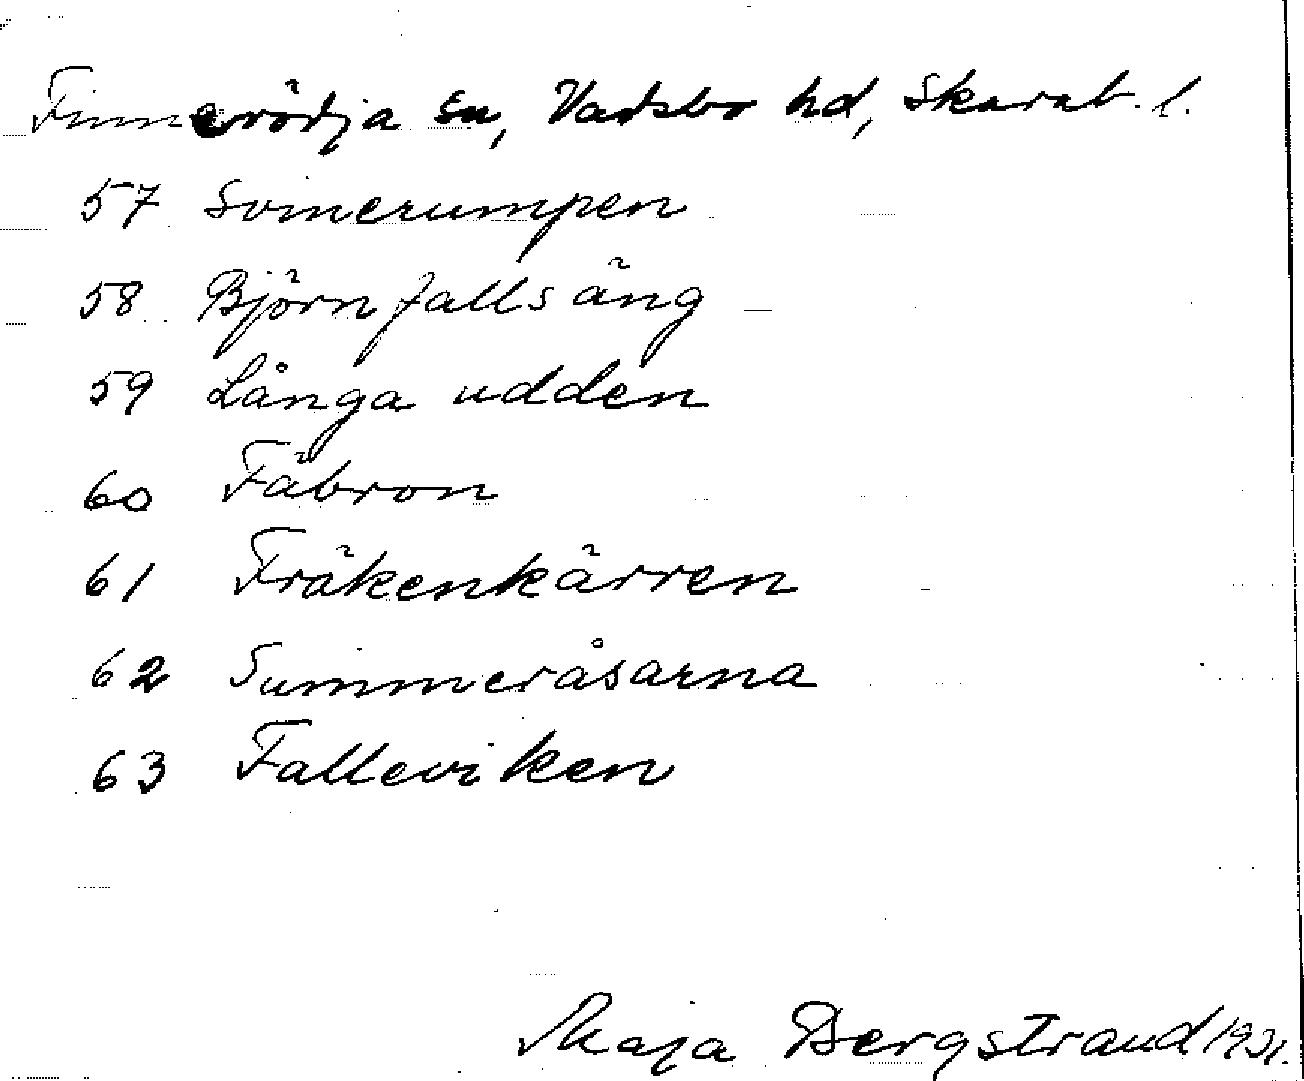 Finnerödja sn, Vadsbo hd, Skarab. l.
57 Svinerumpen
58 Björnfallsäng
59 Långa udden
60 Fäbron
61 Fräkenkärren
62 Summeråsarna
63 Falleviken
Maja Bergstrand 1931.